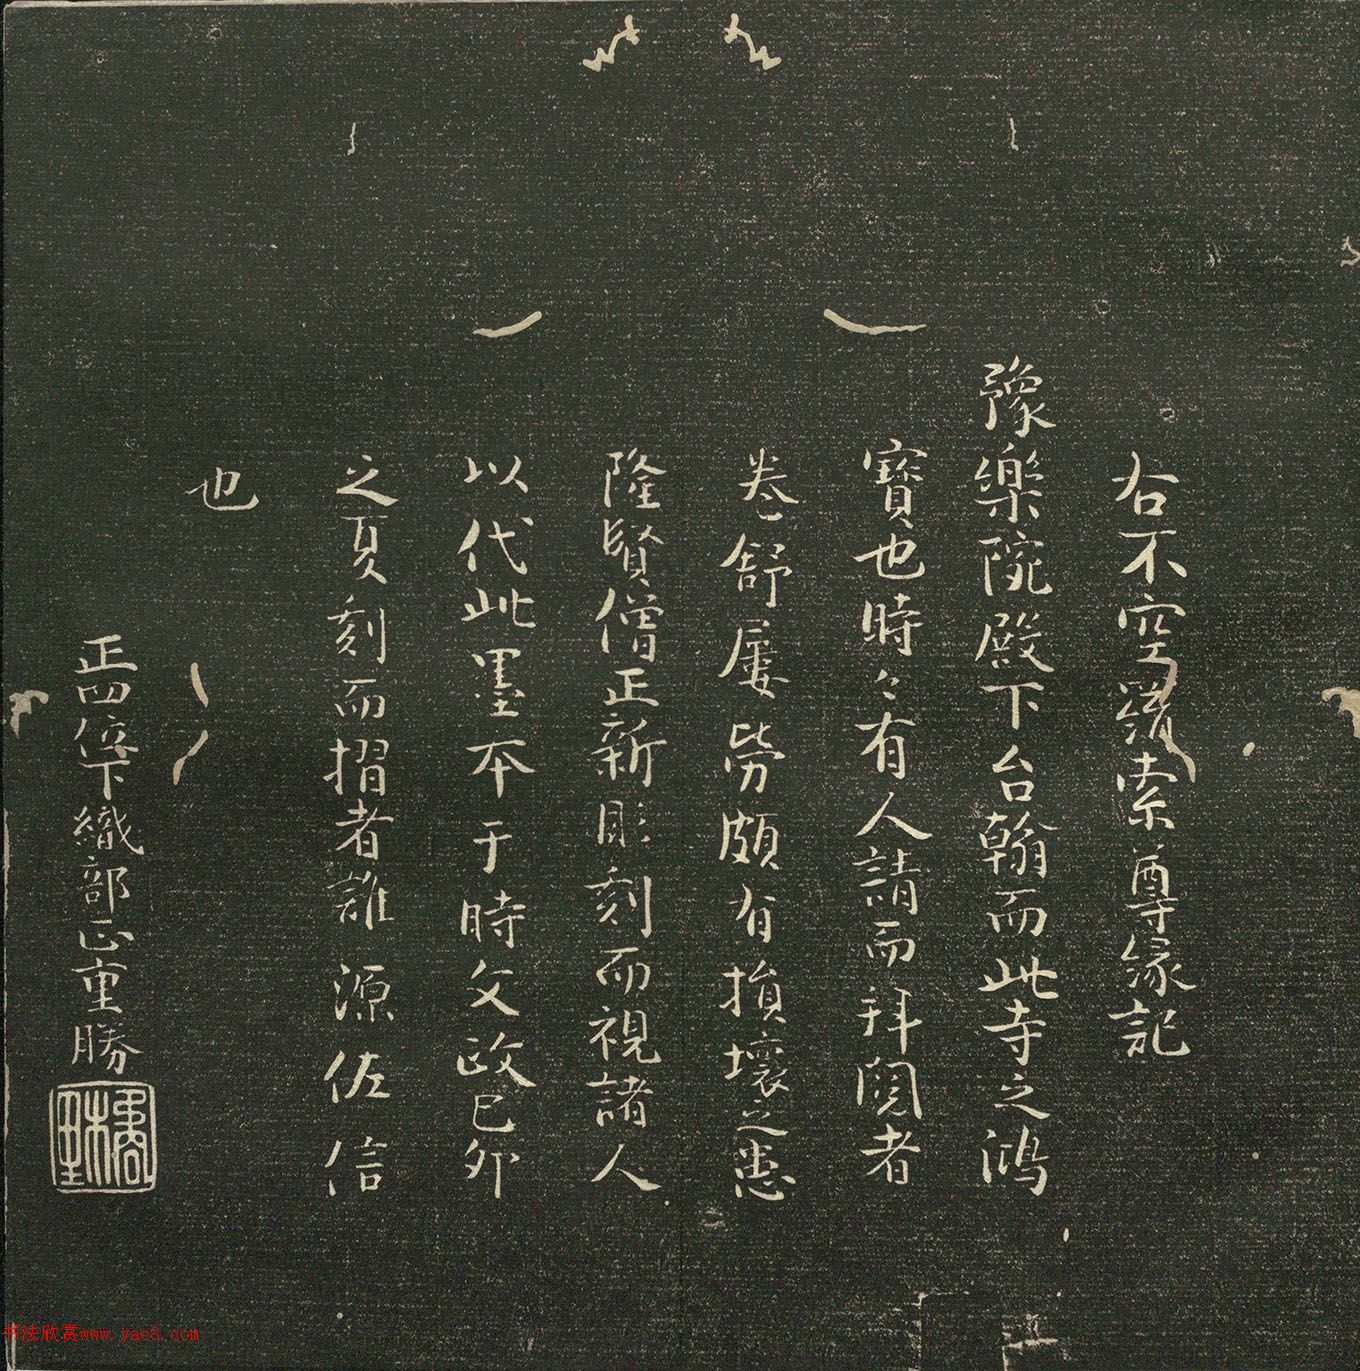 右不空羂索尊緣記
豫樂院殿下台翰而此寺之鴻
寶也時々有人請而拜閱者
卷舒屢勞頗有損壞之患
隆賢僧正新彫刻而視諸人
以代此墨本于時文政己卯
之夏刻而摺者誰源佐信
也
正四位下織部正重勝
书法欣赏www.yac8.com